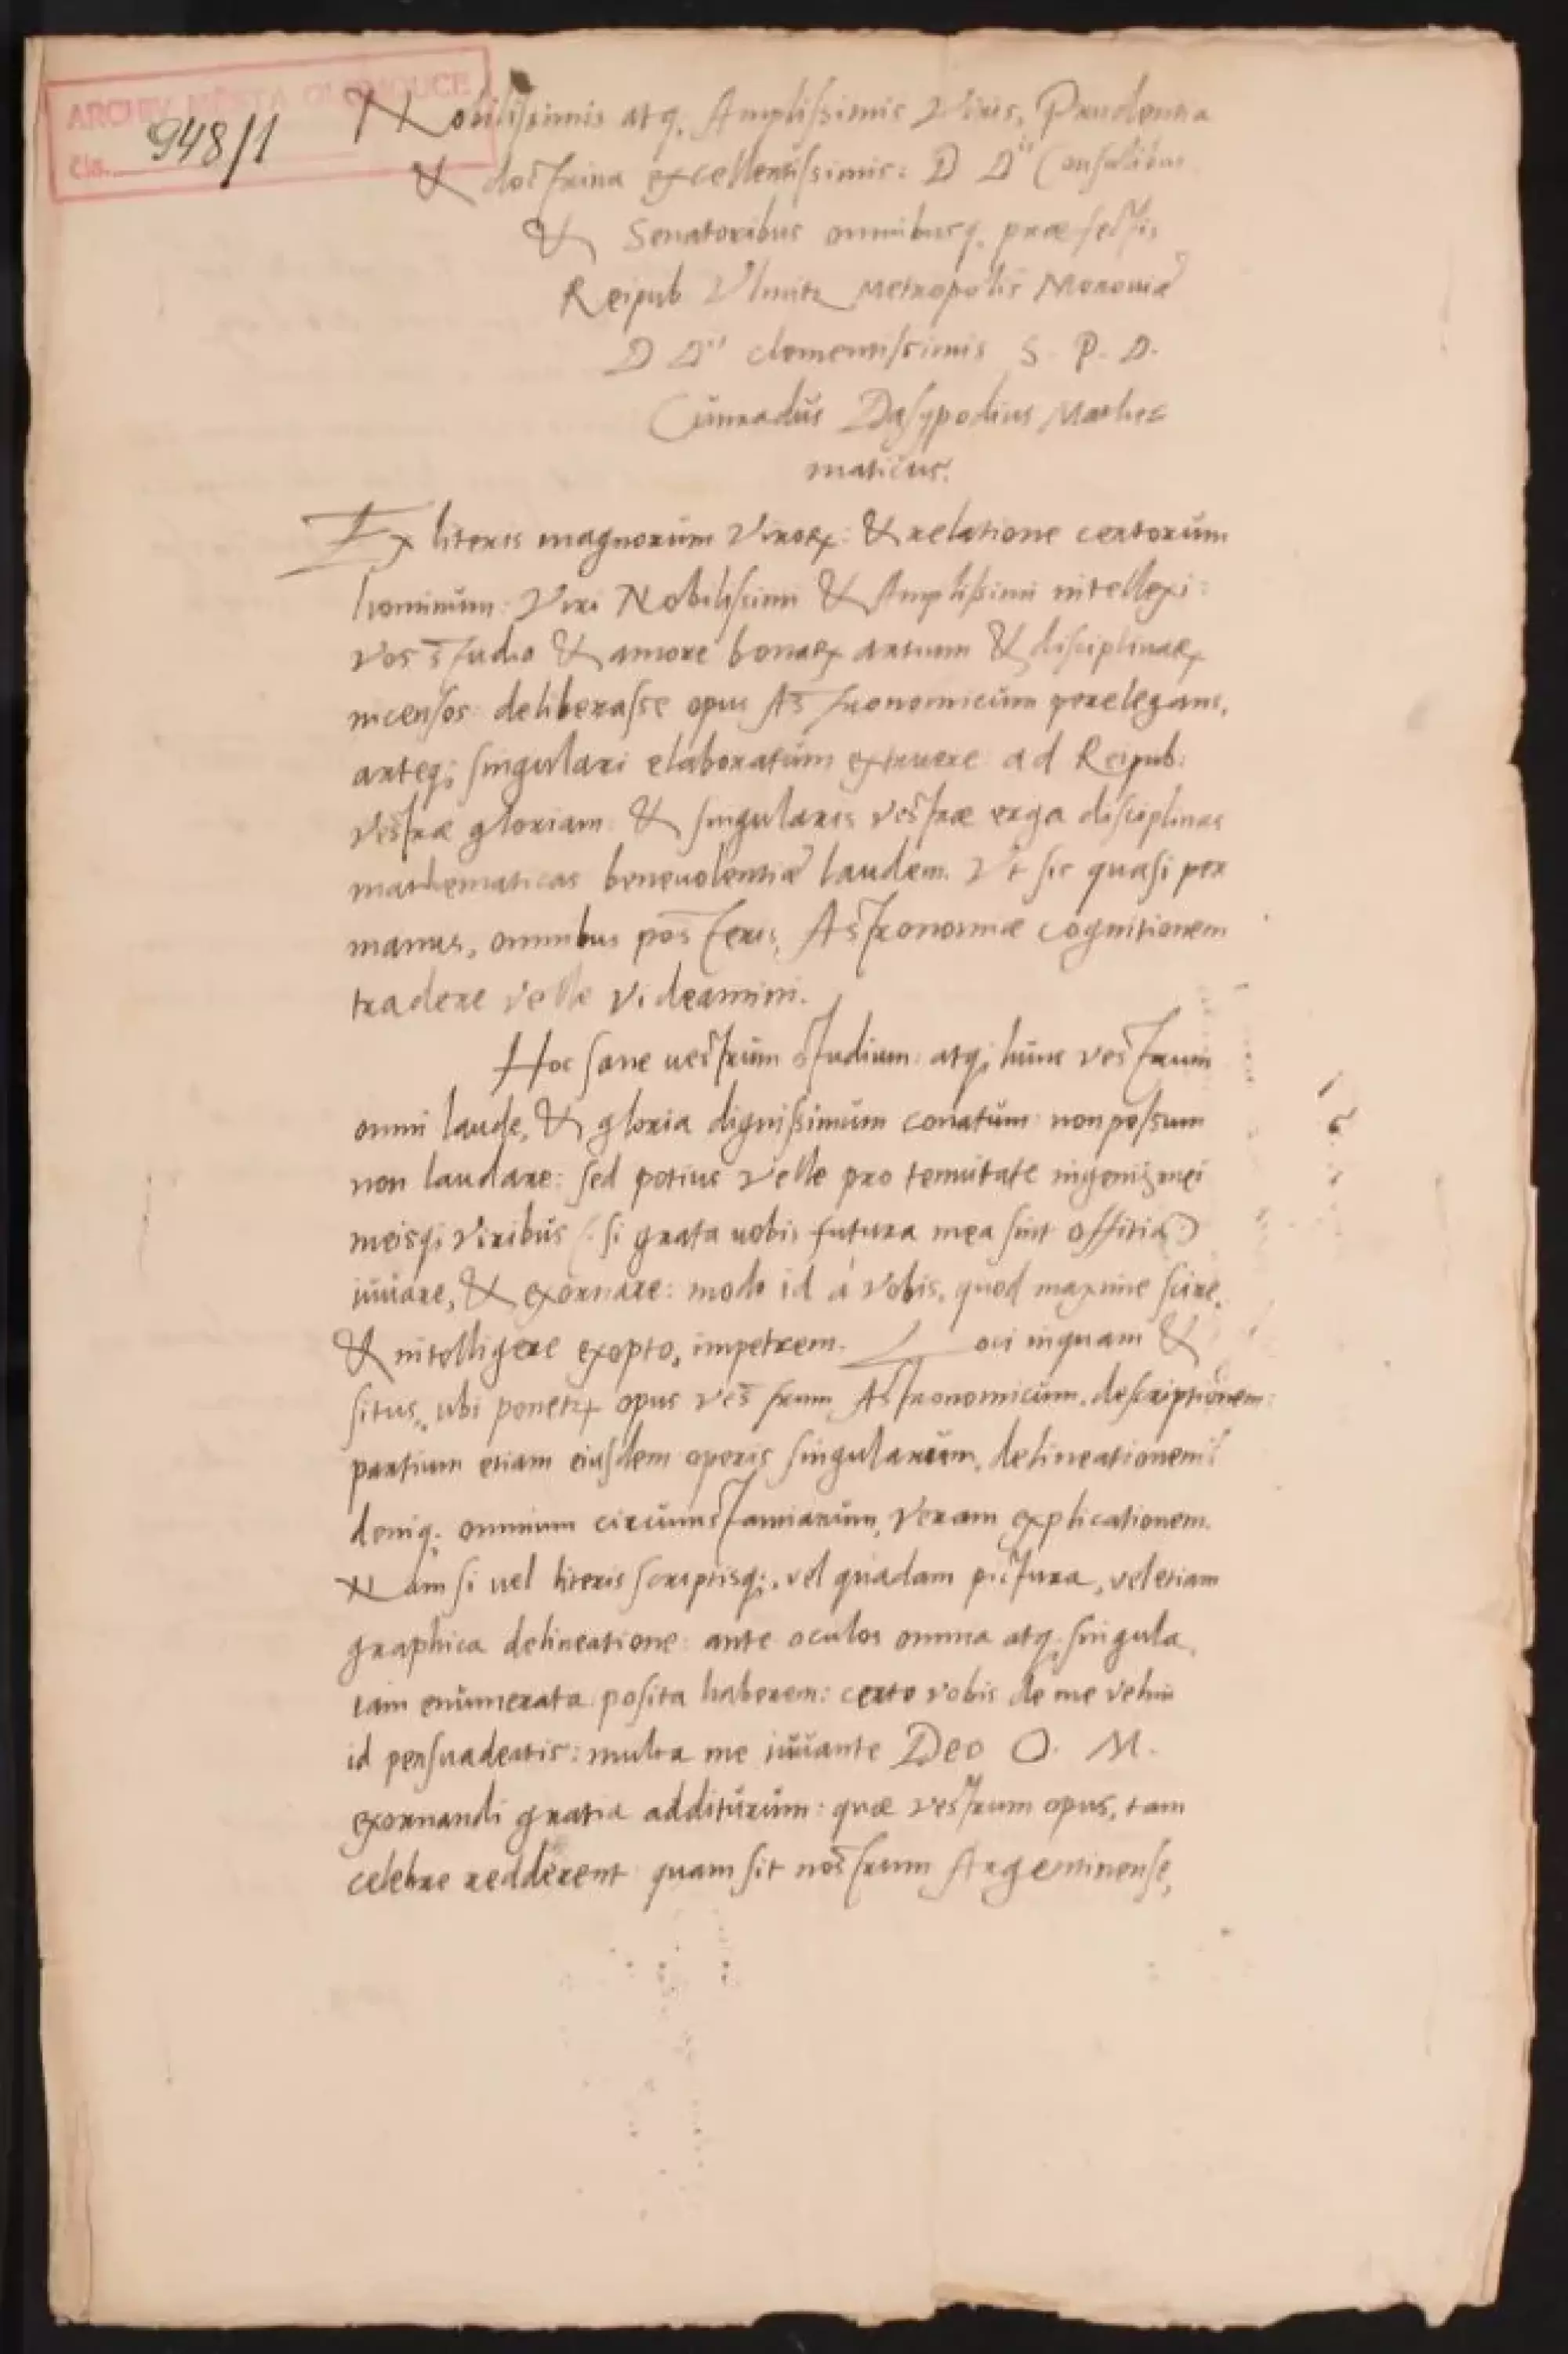 ARCHIV MĚSTA OLOMOUCE
Čís. 948/1
Nobilissimis atq. Amplissimis Viris, Prudentia
& doctrina excellentissimis: D Dis Consulibus
& Senatoribus omnibusq. præfectis
Reipub Vlmitz Metropolis Morouiæ
D Dis clementissimis S. P. D.
Cunradus Dasypodius Mathe
maticus.
Ex literis magnorum Viroꝝ: & relatione certorum
hominum: Viri Nobilissimi & Amplissimi intellexi:
vos studio & amore bonaꝝ artium & disciplinaꝝ
incensos deliberasse opus Astronomicum perelegans,
arteq; singulari elaboratum extruere ad Reipub:
vestræ gloriam & singularis vestræ erga disciplinas
mathematicas beneuolentiæ laudem. Vt sic quasi per
manus, omnibus posteris, Astronomiæ cognitionem
tradere velle videamini.
Hoc sane uestrum studium: atq; hunc vestrum
omni laude, & gloria dignissimum conatum: non possum
non laudare: sed potius velle pro tenuitate ingenij mei
meisq; viribus (: si grata uobis futura mea sint offitia:)
iuuare, & exornare: modo id à vobis, quod maxime scire,
& intelligere exopto, impetrem. Loci inquam &
situs, ubi ponetꝝ opus vestrum Astronomicum, descriptionem:
partium etiam eiusdem operis singularum, delineationem:
deniq. omnium circumstantiarum, veram explicationem.
Nam si uel literis scriptisq;, vel quadam pictura, vel etiam
graphica delineatione: ante oculos omnia atq. singula,
iam enumerata posita haberem: certo vobis de me velim
id persuadeatis: multa me iuuante Deo O. M.
exornandi gratia additurum: quæ vestrum opus, tam
celebre redderent quam sit nostrum Argentinense,